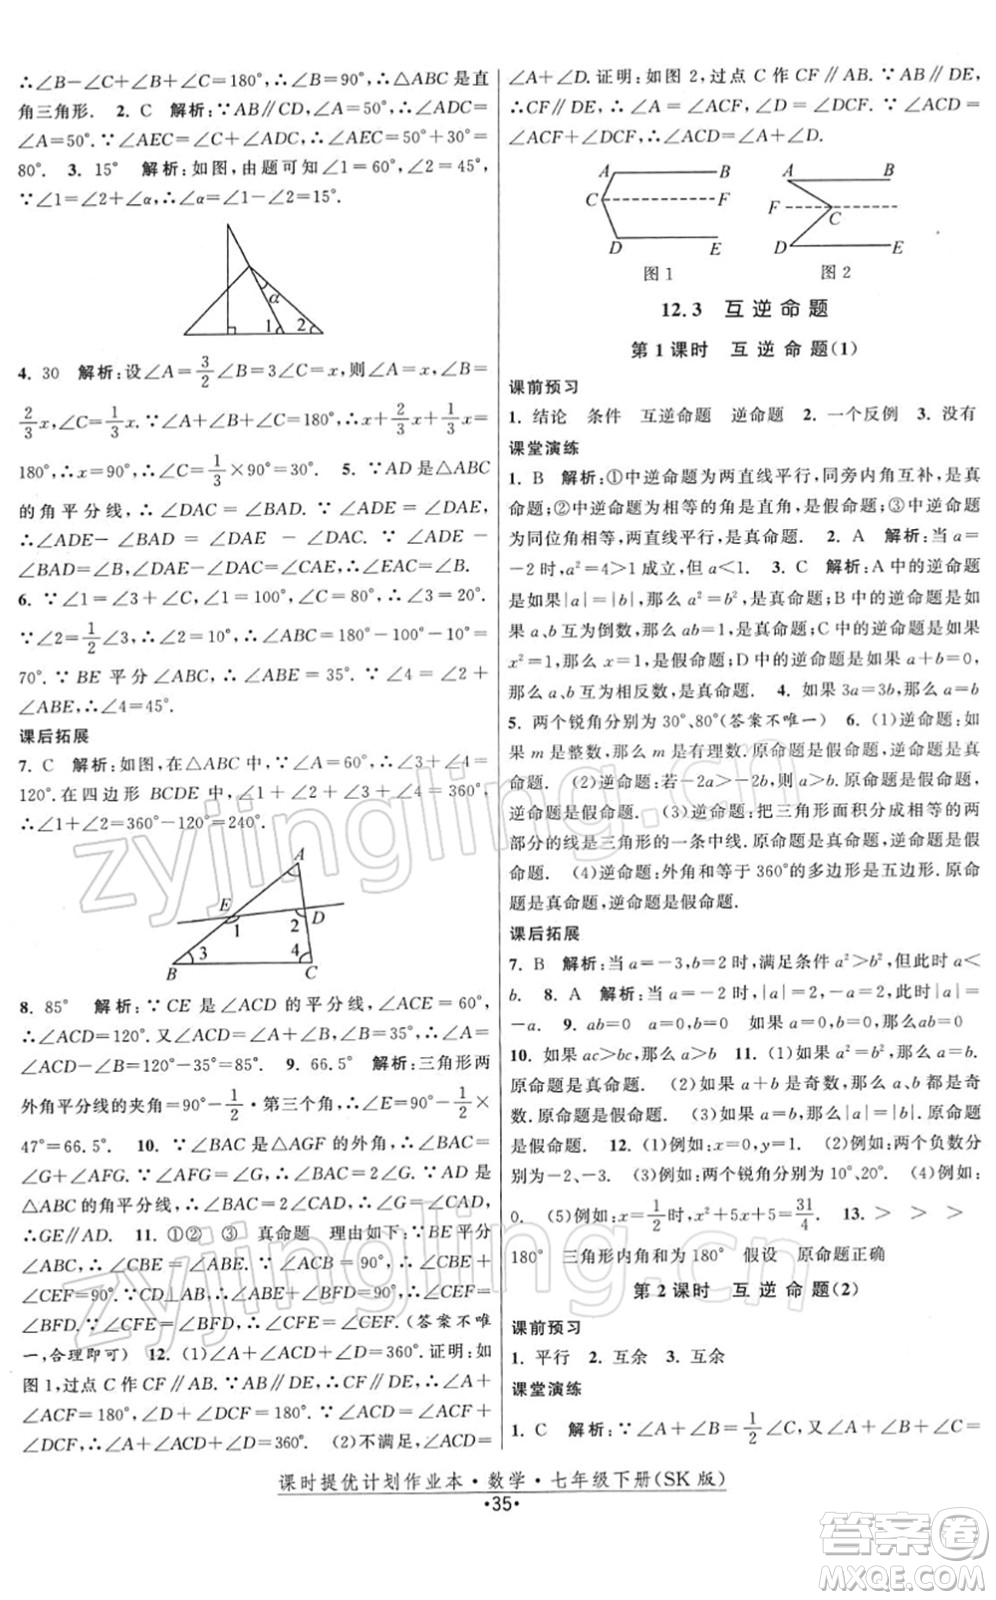 ∴∠B-∠C+∠B+∠C=180°,∴∠B=90°,∴△ABC是直
角三角形. 2. C 解析:∵AB∥CD,∠A=50°,∴∠ADC=
∠A=50°.∵∠AEC=∠C+∠ADC,∴∠AEC=50°+30°=
80°. 3. 15° 解析:如图,由题可知∠1=60°,∠2=45°.
∵∠1=∠2+∠α,∴∠α=∠1-∠2=15°.
α
1 2
4. 30 解析:设∠A=3/2∠B=3∠C=x,则∠A=x,∠B=
2/3x,∠C=1/3x.∵∠A+∠B+∠C=180°,∴x+2/3x+1/3x=
180°,∴x=90°,∴∠C=1/3×90°=30°. 5. ∵AD是∠BAC
的角平分线,∴∠DAC=∠BAD.∵∠ADE=∠DAE,
∴∠ADE-∠BAD=∠DAE-∠DAC.∵∠ADE-
∠BAD=∠B,∠DAE-∠DAC=∠CAE,∴∠CAE=∠B.
6. ∵∠1=∠3+∠C,∠1=100°,∠C=80°,∴∠3=20°.
∵∠2=1/2∠3,∴∠2=10°,∴∠ABC=180°-100°-10°=
70°.∵BE平分∠ABC,∴∠ABE=35°.∵∠4=∠2+
∠ABE,∴∠4=45°.
课后拓展
7. C 解析:如图,在△ABC中,∵∠A=60°,∴∠3+∠4=
120°.在四边形BCDE中,∠1+∠2+∠3+∠4=360°,
∴∠1+∠2=360°-120°=240°.
A
E
1 2 D
B 3 4 C
8. 85° 解析:∵CE是∠ACD的平分线,∠ACE=60°,
∴∠ACD=120°.又∵∠ACD=∠A+∠B,∠B=35°,∴∠A=
∠ACD-∠B=120°-35°=85°. 9. 66.5° 解析:三角形两
外角平分线的夹角=90°-1/2·第三个角,∴∠E=90°-1/2×
47°=66.5°. 10. ∵∠BAC是△AGF的外角,∴∠BAC=
∠G+∠AFG.∵∠AFG=∠G,∴∠BAC=2∠G.∵AD是
△ABC的角平分线,∴∠BAC=2∠CAD,∴∠G=∠CAD,
∴GE∥AD. 11. ①② ③ 真命题 理由如下:∵BE平分
∠ABC,∴∠CBE=∠ABE.∵∠ACB=90°,∴∠CBE+
∠CEF=90°.∵CD⊥AB,∴∠ABE+∠BFD=90°,∴∠CEF=
∠BFD.∵∠CFE=∠BFD,∴∠CFE=∠CEF.(答案不唯
一,合理即可) 12. (1)∠A+∠ACD+∠D=360°.证明:如
图1,过点C作CF∥AB.∵AB∥DE,∴CF∥DE,∴∠A+
∠ACF=180°,∠D+∠DCF=180°.∵∠ACD=∠ACF+
∠DCF,∴∠A+∠ACD+∠D=360°. (2)不满足,∠ACD=
∠A+∠D.证明:如图2,过点C作CF∥AB.∵AB∥DE,
∴CF∥DE,∴∠A=∠ACF,∠D=∠DCF.∵∠ACD=
∠ACF+∠DCF,∴∠ACD=∠A+∠D.
A B
C F
D E
图1
A B
F C
D E
图2
12.3 互逆命题
第1课时 互逆命题(1)
课前预习
1. 结论 条件 互逆命题 逆命题 2. 一个反例 3. 没有
课堂演练
1. B 解析:①中逆命题为两直线平行,同旁内角互补,是真
命题;②中逆命题为相等的角是直角,是假命题;③中逆命题
为同位角相等,两直线平行,是真命题. 2. A 解析:当a=
-2时,a²=4>1成立,但a<1. 3. C 解析:A中的逆命题
是如果|a|=|b|,那么a²=b²,是真命题;B中的逆命题是如
果a、b互为倒数,那么ab=1,是真命题;C中的逆命题是如果
x²=1,是假命题;D中的逆命题是如果a+b=0,
那么a、b互为相反数,是真命题. 4. 如果3a=3b,那么a=b
5. 两个锐角分别为30°、80°(答案不唯一) 6. (1)逆命题:如
果m是整数,那么m是有理数.原命题是假命题,逆命题是真
命题. (2)逆命题:若-2a>-2b,则a>b.原命题是假命题,
逆命题是假命题. (3)逆命题:把三角形面积分成相等的两
部分的线是三角形的一条中线.原命题是真命题,逆命题是
假命题. (4)逆命题:外角和等于360°的多边形是五边形.原命
题是真命题,逆命题是假命题.
课后拓展
7. B 解析:当a=-3,b=2时,满足条件a²>b²,此时a<
b. 8. A 解析:当a=-2时,|a|=2>a,此时|a|=
-a. 9. ab=0 a=0 如果a=0,那么ab=0
10. 如果ac>bc,那么a>b 11. (1)如果a²=b²,那么a=b.
原命题是真命题. (2)如果a+b是奇数,那么a、b都是奇
数.原命题是假命题. (3)如果a=b,那么|a|=|b|.原命题
是假命题. 12. (1)例如:x=0,y=1. (2)例如:两个负数分
别为-2、-3. (3)例如:两个锐角分别为10°、20°. (4)例如:
0. (5)例如:x=1/2时,x²+5x+5=31/4. 13. > > >
180° 三角形内角和为180° 假设 原命题正确
第2课时 互逆命题(2)
课前预习
1. 平行 2. 互余 3. 互余
课堂演练
1. C 解析:∵∠A+∠B=1/2∠C,又∠A+∠B+∠C=
课时提优计划作业本·数学·七年级下册(SK版)
·35·
zyjingling.cn
zyjingling.cn
答案圈
MXQE.COM